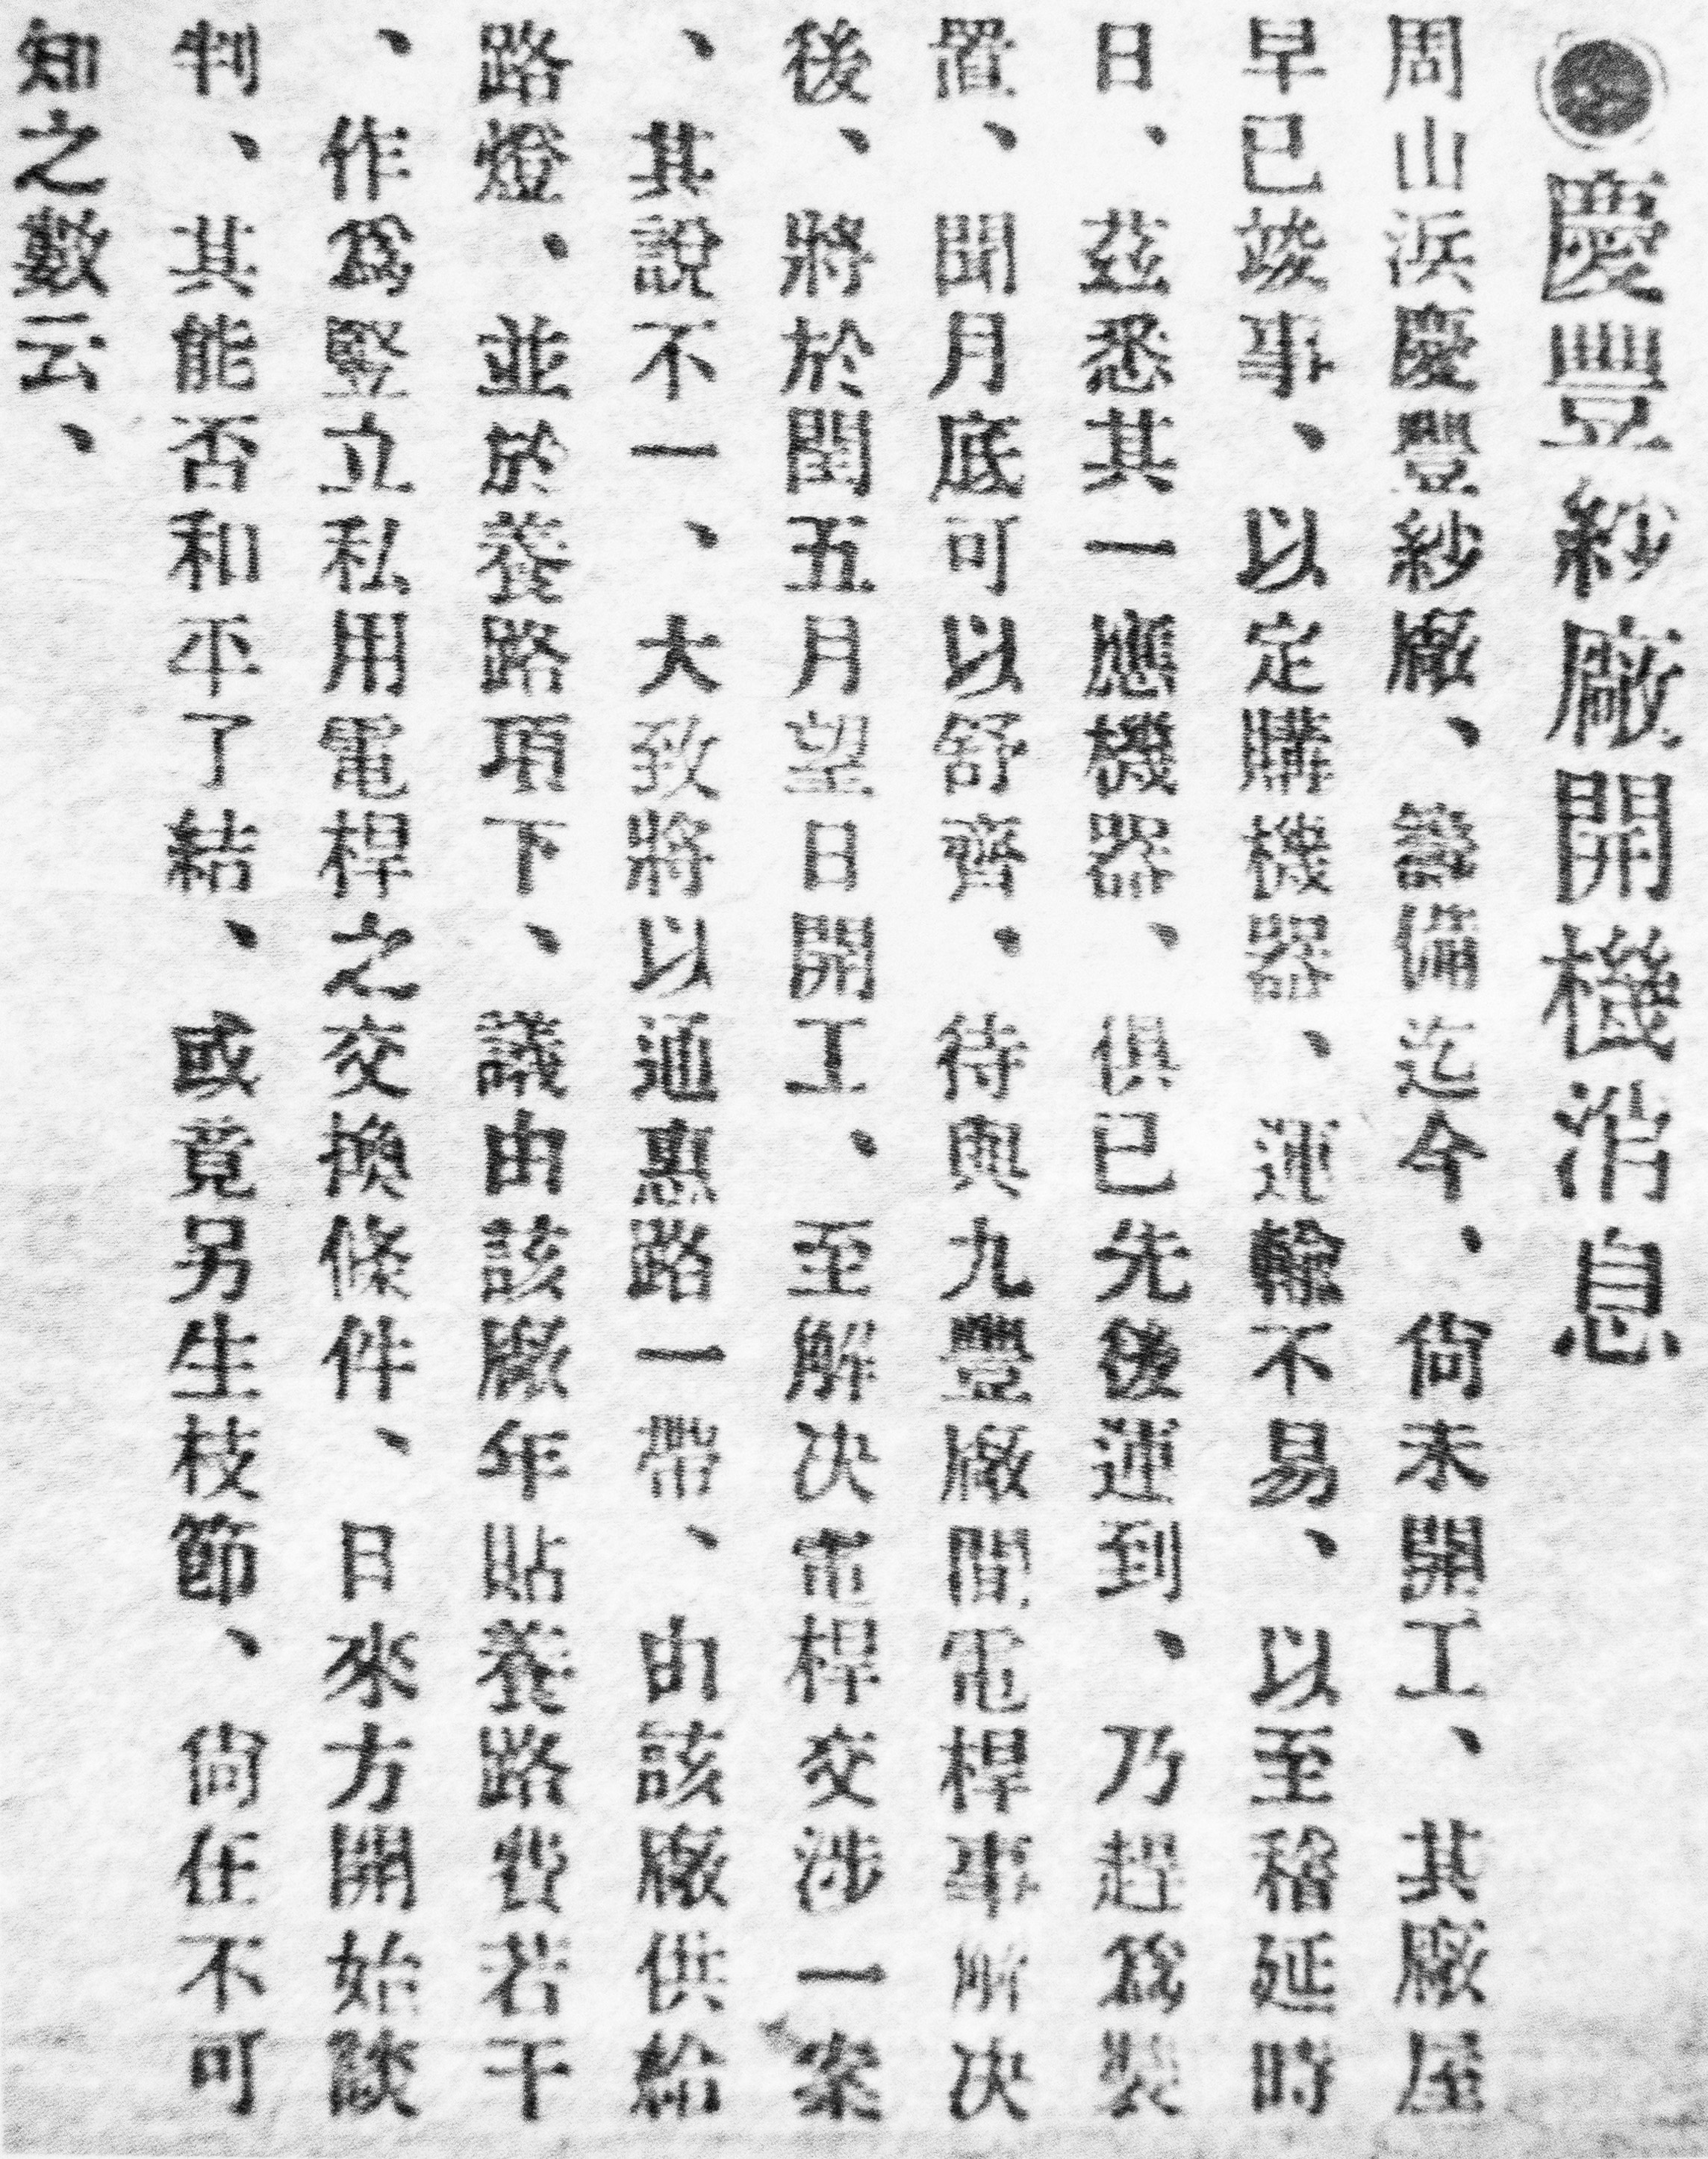 ●慶豐紗廠開機消息
周山浜慶豐紗廠、籌備迄今、尙未開工、其廠屋
早已竣事、以定購機器、運輸不易、以至稽延時
日、茲悉其一應機器、俱已先後運到、乃趕爲裝
置、聞月底可以舒齊、待與九豐廠間電桿事解決
後、將於閏五月望日開工、至解决電桿交涉一案
、其說不一、大致將以通惠路一帶、由該廠供給
路燈、並於養路項下、議由該廠年貼養路費若干
、作爲豎立私用電桿之交換條件、日來方開始談
判、其能否和平了結、或竟另生枝節、尙在不可
知之數云、